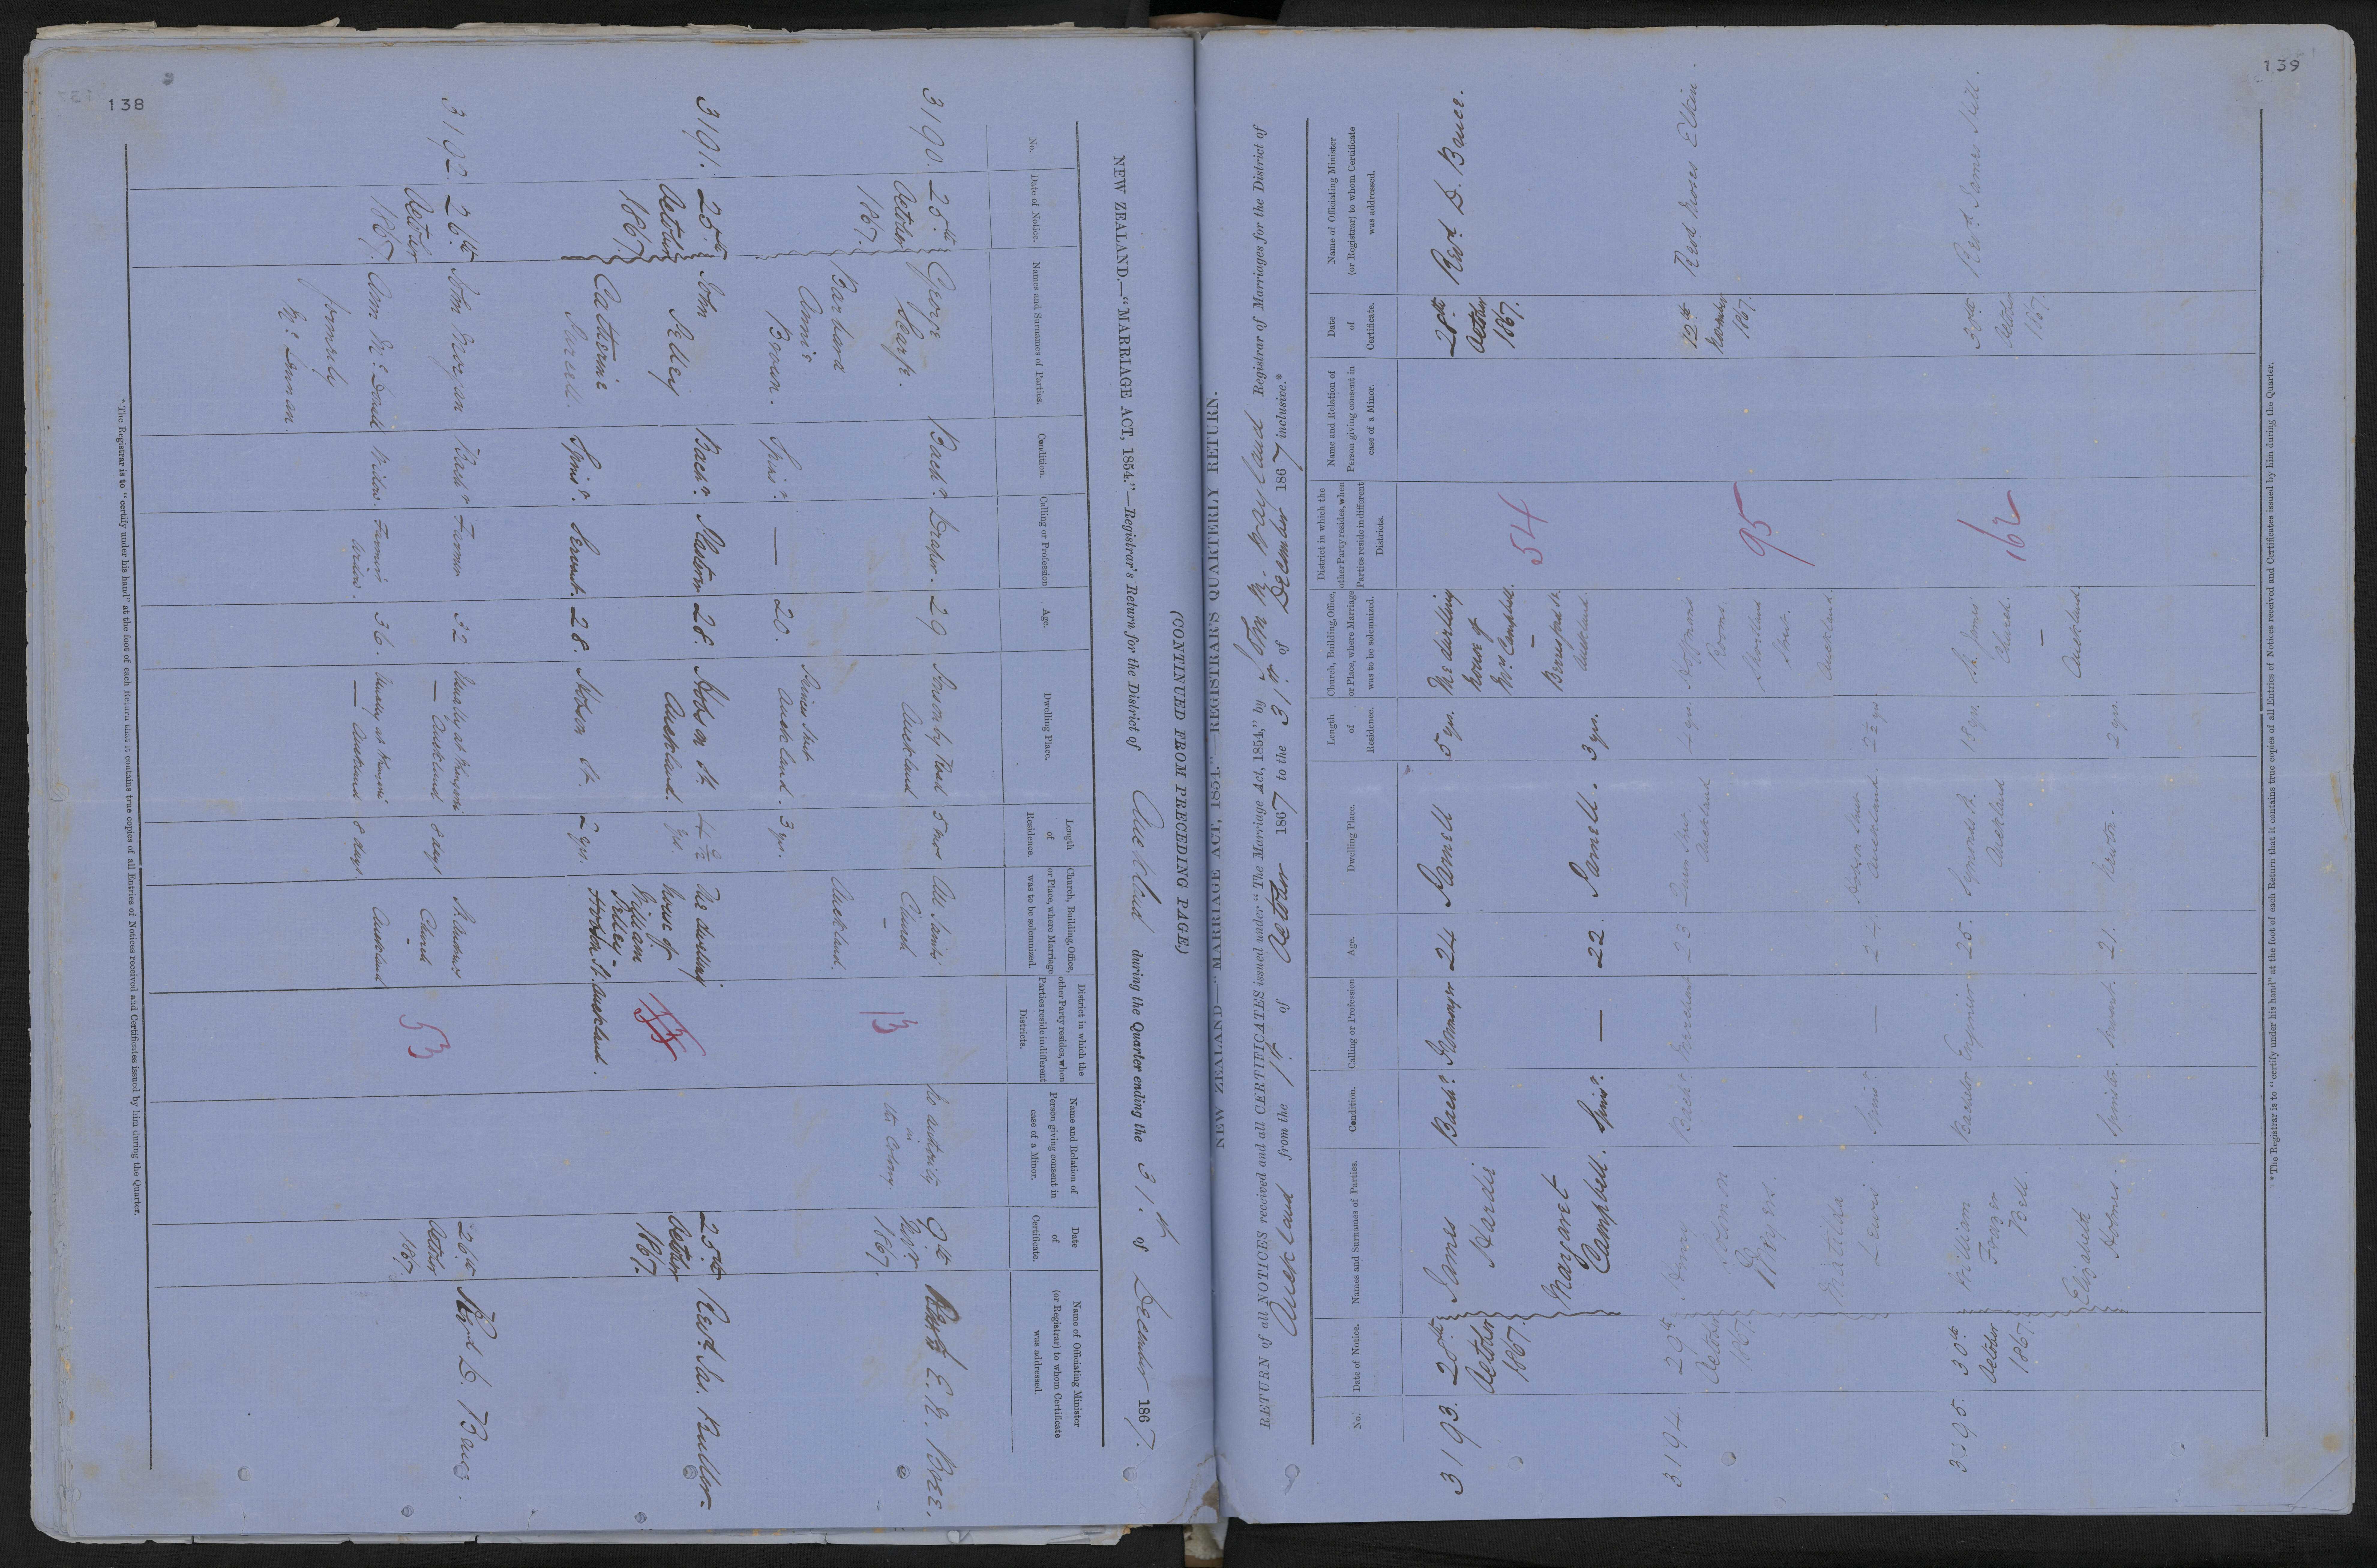 138
(CONTINUED FROM PRECEDING PAGE.)
NEW ZEALAND.—"MARRIAGE ACT, 1854."—Registrar's Return for the District of Auckland during the Quarter ending the 31st of December 1867.
No.
Date of Notice.
Names and Surnames of Parties.
Condition.
Calling or Profession
Age.
Dwelling Place.
Length
of
Residence.
Church, Building, Office,
or Place, where Marriage
was to be solemnized.
District in which the
other Party resides, when
Parties reside in different
Districts.
Name and Relation of
Person giving consent in
case of a Minor.
Date
of
Certificate.
Name of Officiating Minister
(or Registrar) to whom Certificate
was addressed.
3190.
25th
October
1867.
George
Scarfe.
Barbara
Annie
Brown.
Bachr.
Spinr.
Draper.
—
29
20.
Ponsonby Road
Auckland
Princes Street
Auckland.
5 mos
3 yrs.
All Saints
Church
-
Auckland.
13
No authority
in
the Colony.
9th
Novr
1867.
Revd. E. N. Bree.
3191.
25th
October
1867.
John
Catherine
Bachr.
Spinr.
Servant.
28.
28.
Hobson St
Auckland.
Hobson St.
yrs.
2 yrs.
The dwelling
house of
William
Hobson St. Auckland.
25th
October
1867.
Revd. Jas. Buller.
3192.
26th
October
1867.
John Morgan
Ann McDonald
formerly
McLennan.
Bachr
Widow.
Farmer
Farmer's
widow.
32
36.
Usually at
— Auckland
Usually at
— Auckland
8 days
8 days
St Andrews
Church
-
Auckland
53
26th
October
1867.
Revd D. Bruce.
*The Registrar is to "certify under his hand" at the foot of each Return that it contains true copies of all Entries of Notices received and Certificates issued by him during the Quarter.
139
NEW ZEALAND.—"MARRIAGE ACT, 1854."—REGISTRAR'S QUARTERLY RETURN.
RETURN of all NOTICES received and all CERTIFICATES issued under "The Marriage Act, 1854," by John M. Wayland Registrar of Marriages for the District of
Auckland from the 1st of October 1867 to the 31st of December 1867 inclusive.*
No.
Date of Notice.
Names and Surnames of Parties.
Condition.
Calling or Profession
Age.
Dwelling Place.
Length
of
Residence.
Church, Building, Office,
or Place, where Marriage
was to be solemnized.
District in which the
other Party resides, when
Parties reside in different
Districts.
Name and Relation of
Person giving consent in
case of a Minor.
Date
of
Certificate.
Name of Officiating Minister
(or Registrar) to whom Certificate
was addressed.
3193.
28th
October
1867.
James
Hardie
Margaret
Campbell.
Bachr.
Spinr.
—
24
22.
Parnell
Parnell.
5 yrs.
3 yrs.
The dwelling
house of
Mr. Campbell.
—
Auckland.
54
28th
October
1867.
Revd. D. Bruce.
3194.
29th
October
1867.
Henry
Simon
Myers.
Matilda
Lewis.
Bachr.
Spinr
Merchant
—
23
24.
Queen Street
Auckland
Hobson Street
Auckland.
2½ yrs.
Hoffmans
Rooms.
Shortland
Street.
Auckland.
95
12th
November
1867.
Revd Moses Elkin.
3195.
30th
October
1867.
William
Frazer
Bell.
Elizabeth
Holmes.
Bachelor
Spinster.
Engineer
Servant.
25.
21.
Symonds St.
Auckland
Newton.
2 yrs.
St. James
Church.
—
Auckland.
162
30th
October
1867.
Revd. James Hill.
*The Registrar is to "certify under his hand" at the foot of each Return that it contains true copies of all Entries of Notices received and Certificates issued by him during the Quarter.